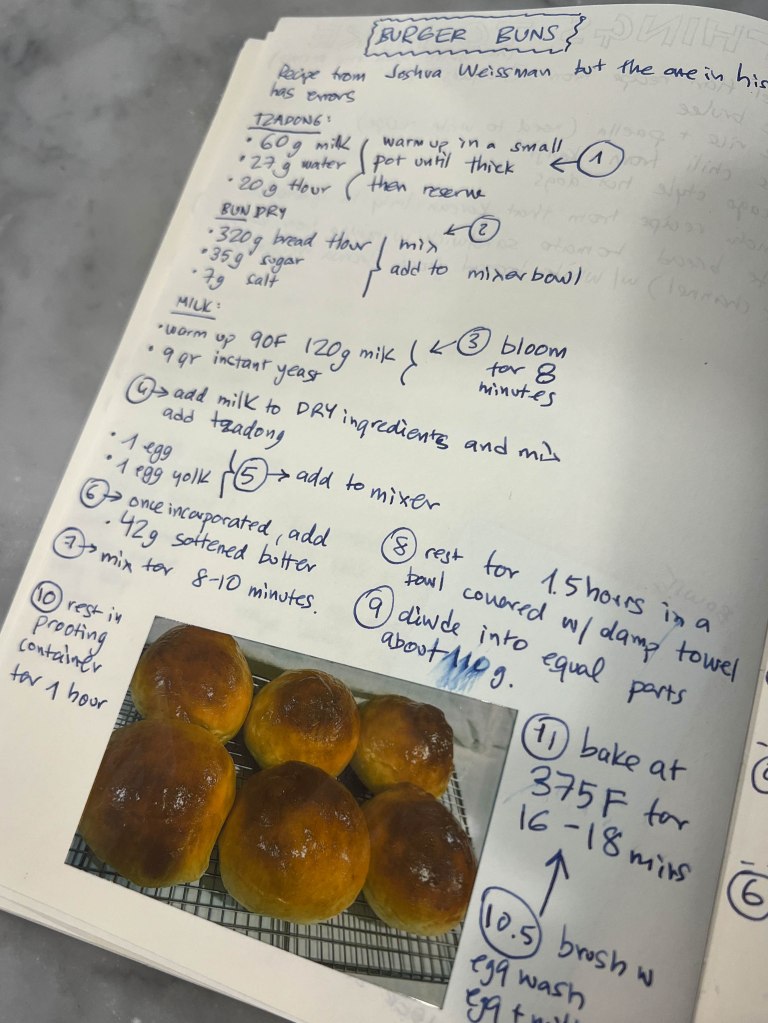 BURGER BUNS
Recipe from Joshua Weissman but the one in his
has errors
TZADONG:
• 60g milk
• 27g water
• 20g flour
warm up in a small
pot until thick
then reserve
← 1
BUN DRY
• 320g bread flour
• 35g sugar
• 7g salt
mix
add to mixer bowl
← 2
MILK:
• warm up 90F 120g milk
• 9 gr instant yeast
← 3 bloom
for 8
minutes
4 → add milk to DRY ingredients and mix
add tzadong
• 1 egg
• 1 egg yolk
5 → add to mixer
6 → once incorporated, add
• 42g softened butter
7 → mix for 8-10 minutes.
8 rest for 1.5 hours in a
bowl covered w/ damp towel
9 divide into equal parts
about g.
10 rest in
proofing
container
for 1 hour
11 bake at
375F for
16-18 mins
10.5 brush w
egg wash
egg +
6